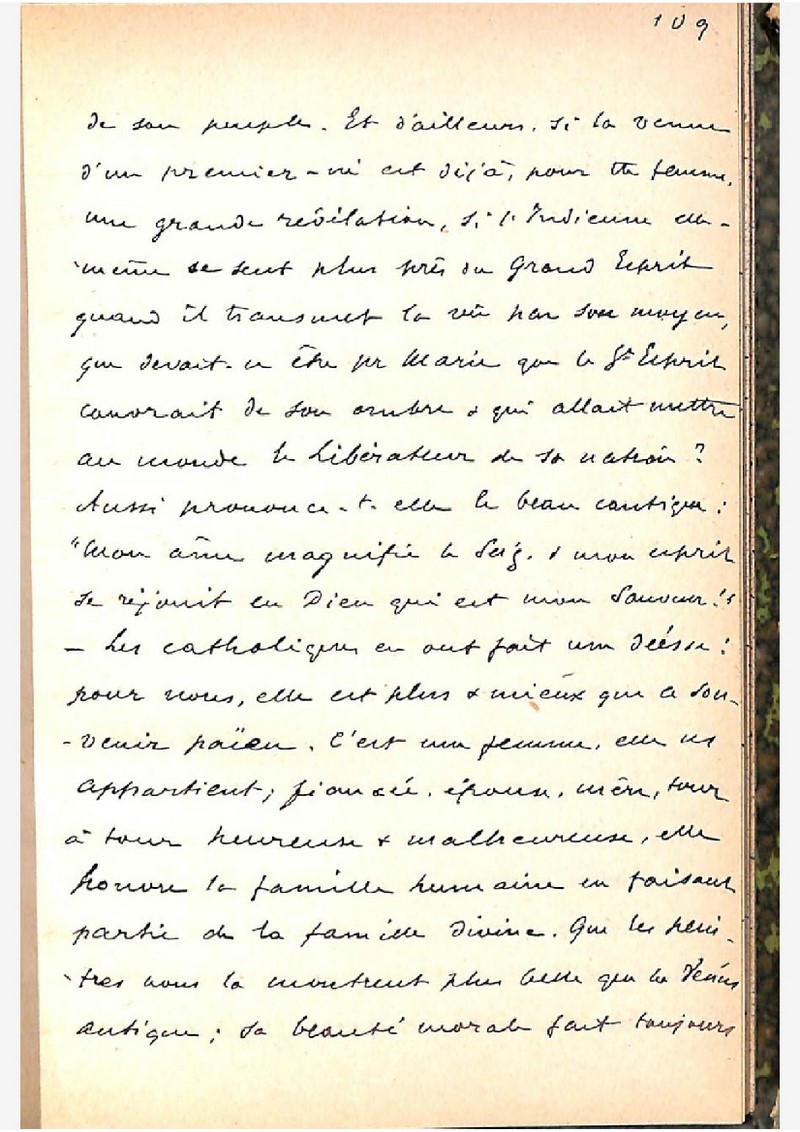 109
de son peuple. Et d'ailleurs, si la venue
d'un premier-né est déjà, pour tte femme,
une grande révélation, si l'Indienne elle-
-même se sent plus près du Grand Esprit
quand il transmet la vie par son moyen,
que devait-ce être pr Marie que le St Esprit
couvrait de son ombre & qui allait mettre
au monde le Libérateur de sa nation ?
Aussi prononce-t-elle le beau cantique :
"Mon âme magnifie le Seig. & mon esprit
se réjouit en Dieu qui est mon Sauveur !"
— Les catholiques en ont fait une déesse :
pour nous, elle est plus & mieux que ce sou-
-venir païen. C'est une femme, elle ns
appartient ; fiancée, épouse, mère, tour
à tour heureuse & malheureuse, elle
honore la famille humaine en faisant
partie de la famille divine. Que les pein-
-tres nous la montrent plus belle que la Vénus
antique ; sa beauté morale fait toujours